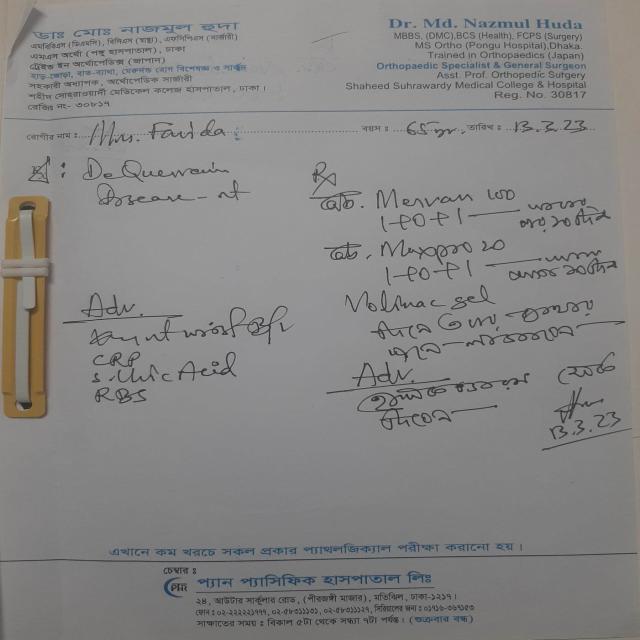 ডাঃ মোঃ নাজমুল হুদা
এমবিবিএস (ডিএমসি), বিসিএস (স্বাস্থ্য), এফসিপিএস (সার্জারী)
এমএস অর্থো (পঙ্গু হাসপাতাল), ঢাকা
ট্রেইন্ড ইন অর্থোপেডিক্স (জাপান)
হাড়-জোড়া, বাত-ব্যাথা, মেরুদন্ড রোগ বিশেষজ্ঞ ও সার্জন
সহকারী অধ্যাপক, অর্থোপেডিক সার্জারী
শহীদ সোহরাওয়ার্দী মেডিকেল কলেজ হাসপাতাল, ঢাকা।
রেজিঃ নং- ৩০৮১৭
Dr. Md. Nazmul Huda
MBBS, (DMC),BCS (Health), FCPS (Surgery)
MS Ortho (Pongu Hospital),Dhaka.
Trained in Orthopaedics (Japan)
Orthopaedic Specialist & General Surgeon
Asst. Prof. Orthopedic Surgery
Shaheed Suhrawardy Medical College & Hospital
Reg. No. 30817
রোগীর নাম : Mrs. Farida বয়স : 65 yr তারিখ : 13.3.23
: De Quervain
Disease - rt
Adv.
CRP
S. Uric Acid
RBS
Rx
Tab. Mervan 100
1+0+1
Tab. Maxpro 20
1+0+1
Volinac gel
দিনে ৩ বার
Adv.
দিবেন
13.3.23
এখানে কম খরচে সকল প্রকার প্যাথলজিক্যাল পরীক্ষা করানো হয়।
চেম্বার :
প্যান প্যাসিফিক হাসপাতাল লিঃ
২৪, আউটার সার্কুলার রোড, (পীরজঙ্গী মাজার), মতিঝিল, ঢাকা-১২১৭।
ফোন : ০২-২২২২২১৭৭৭, ০২-৫৮৩১১১৩১, ০২-৫৮৩১১১২৭, সিরিয়ালের জন্য : ০১৭১৬-৩৬৭১৫৩
সাক্ষাতের সময় : বিকাল ৫টা থেকে সন্ধ্যা ৭টা পর্যন্ত। (শুক্রবার বন্ধ)